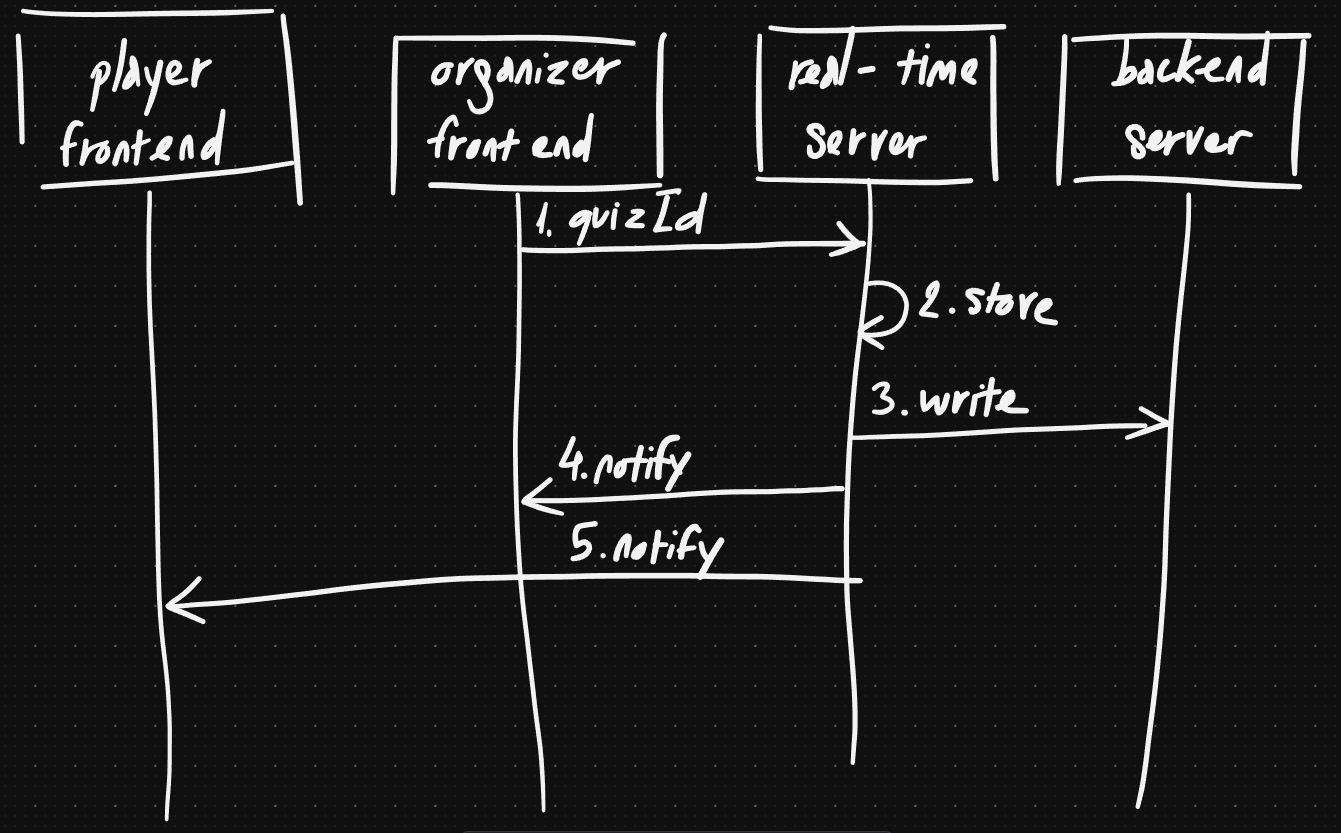 player
frontend
organizer
frontend
real-time
server
backend
server
1. quizId
2. store
3. write
4. notify
5. notify